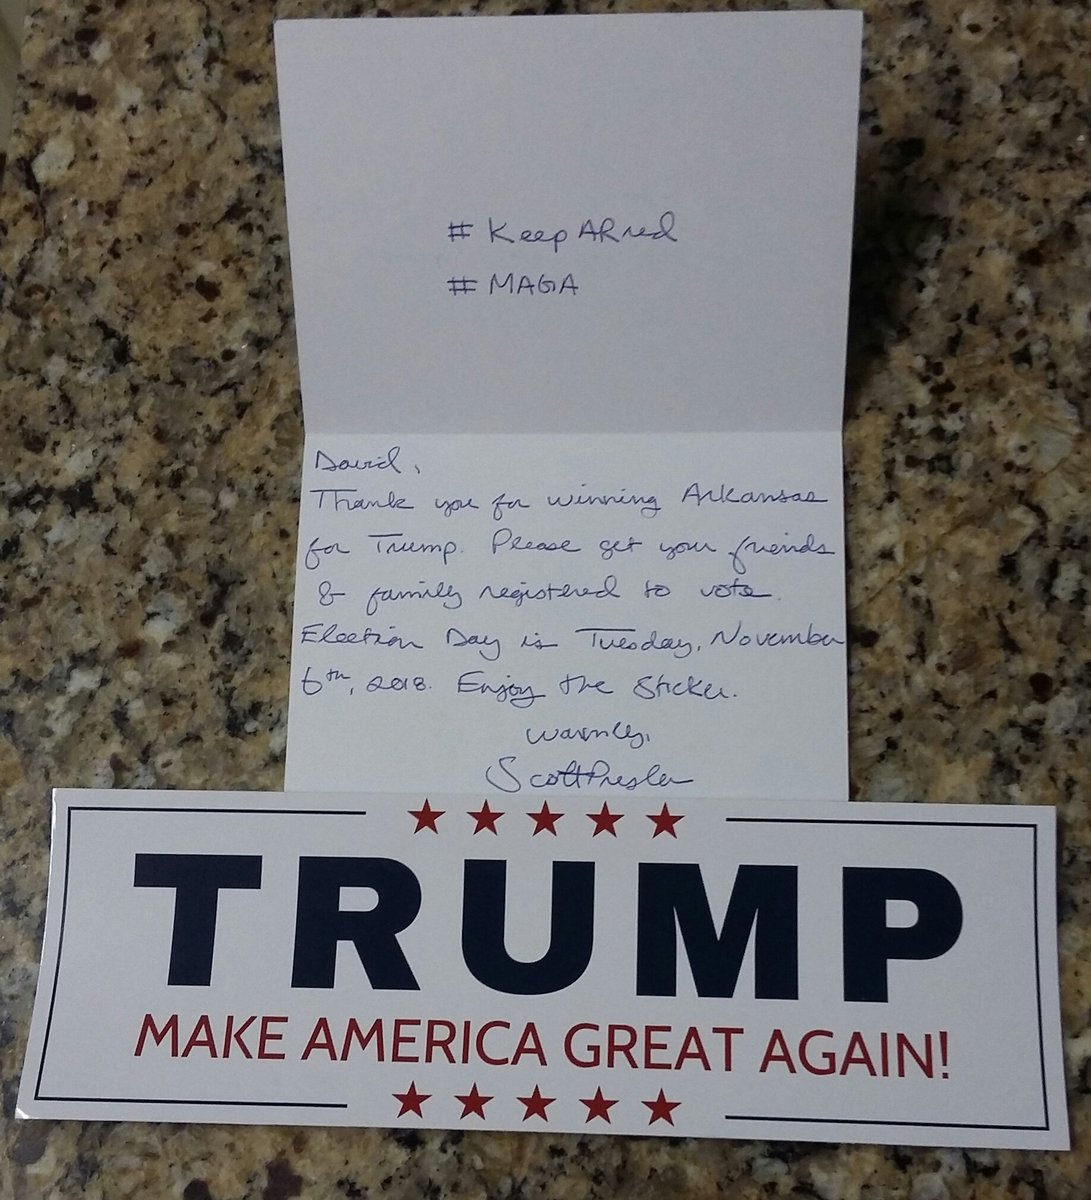 # KeepARred
# MAGA
David,
Thank you for winning Arkansas
for Trump. Please get your friends
& family registered to vote.
Election Day is Tuesday, November
6th, 2018. Enjoy the sticker.
Warmly,
Scott Presler
TRUMP
MAKE AMERICA GREAT AGAIN!